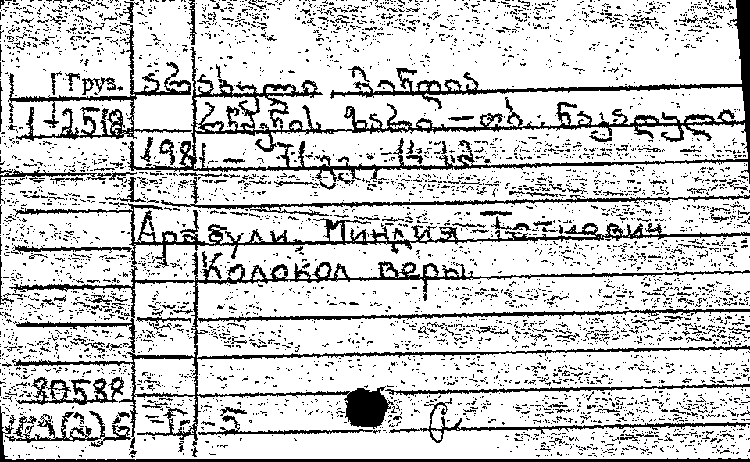 Груз. არაბული, მინდია
1-2518 რწმენის ზარი. — თბ.: ნაკადული
1981 — 71 გვ.; 14 სმ.
Арабули, Миндия Готиевич
Колокол веры.
80588
(2)6 -Гр -5